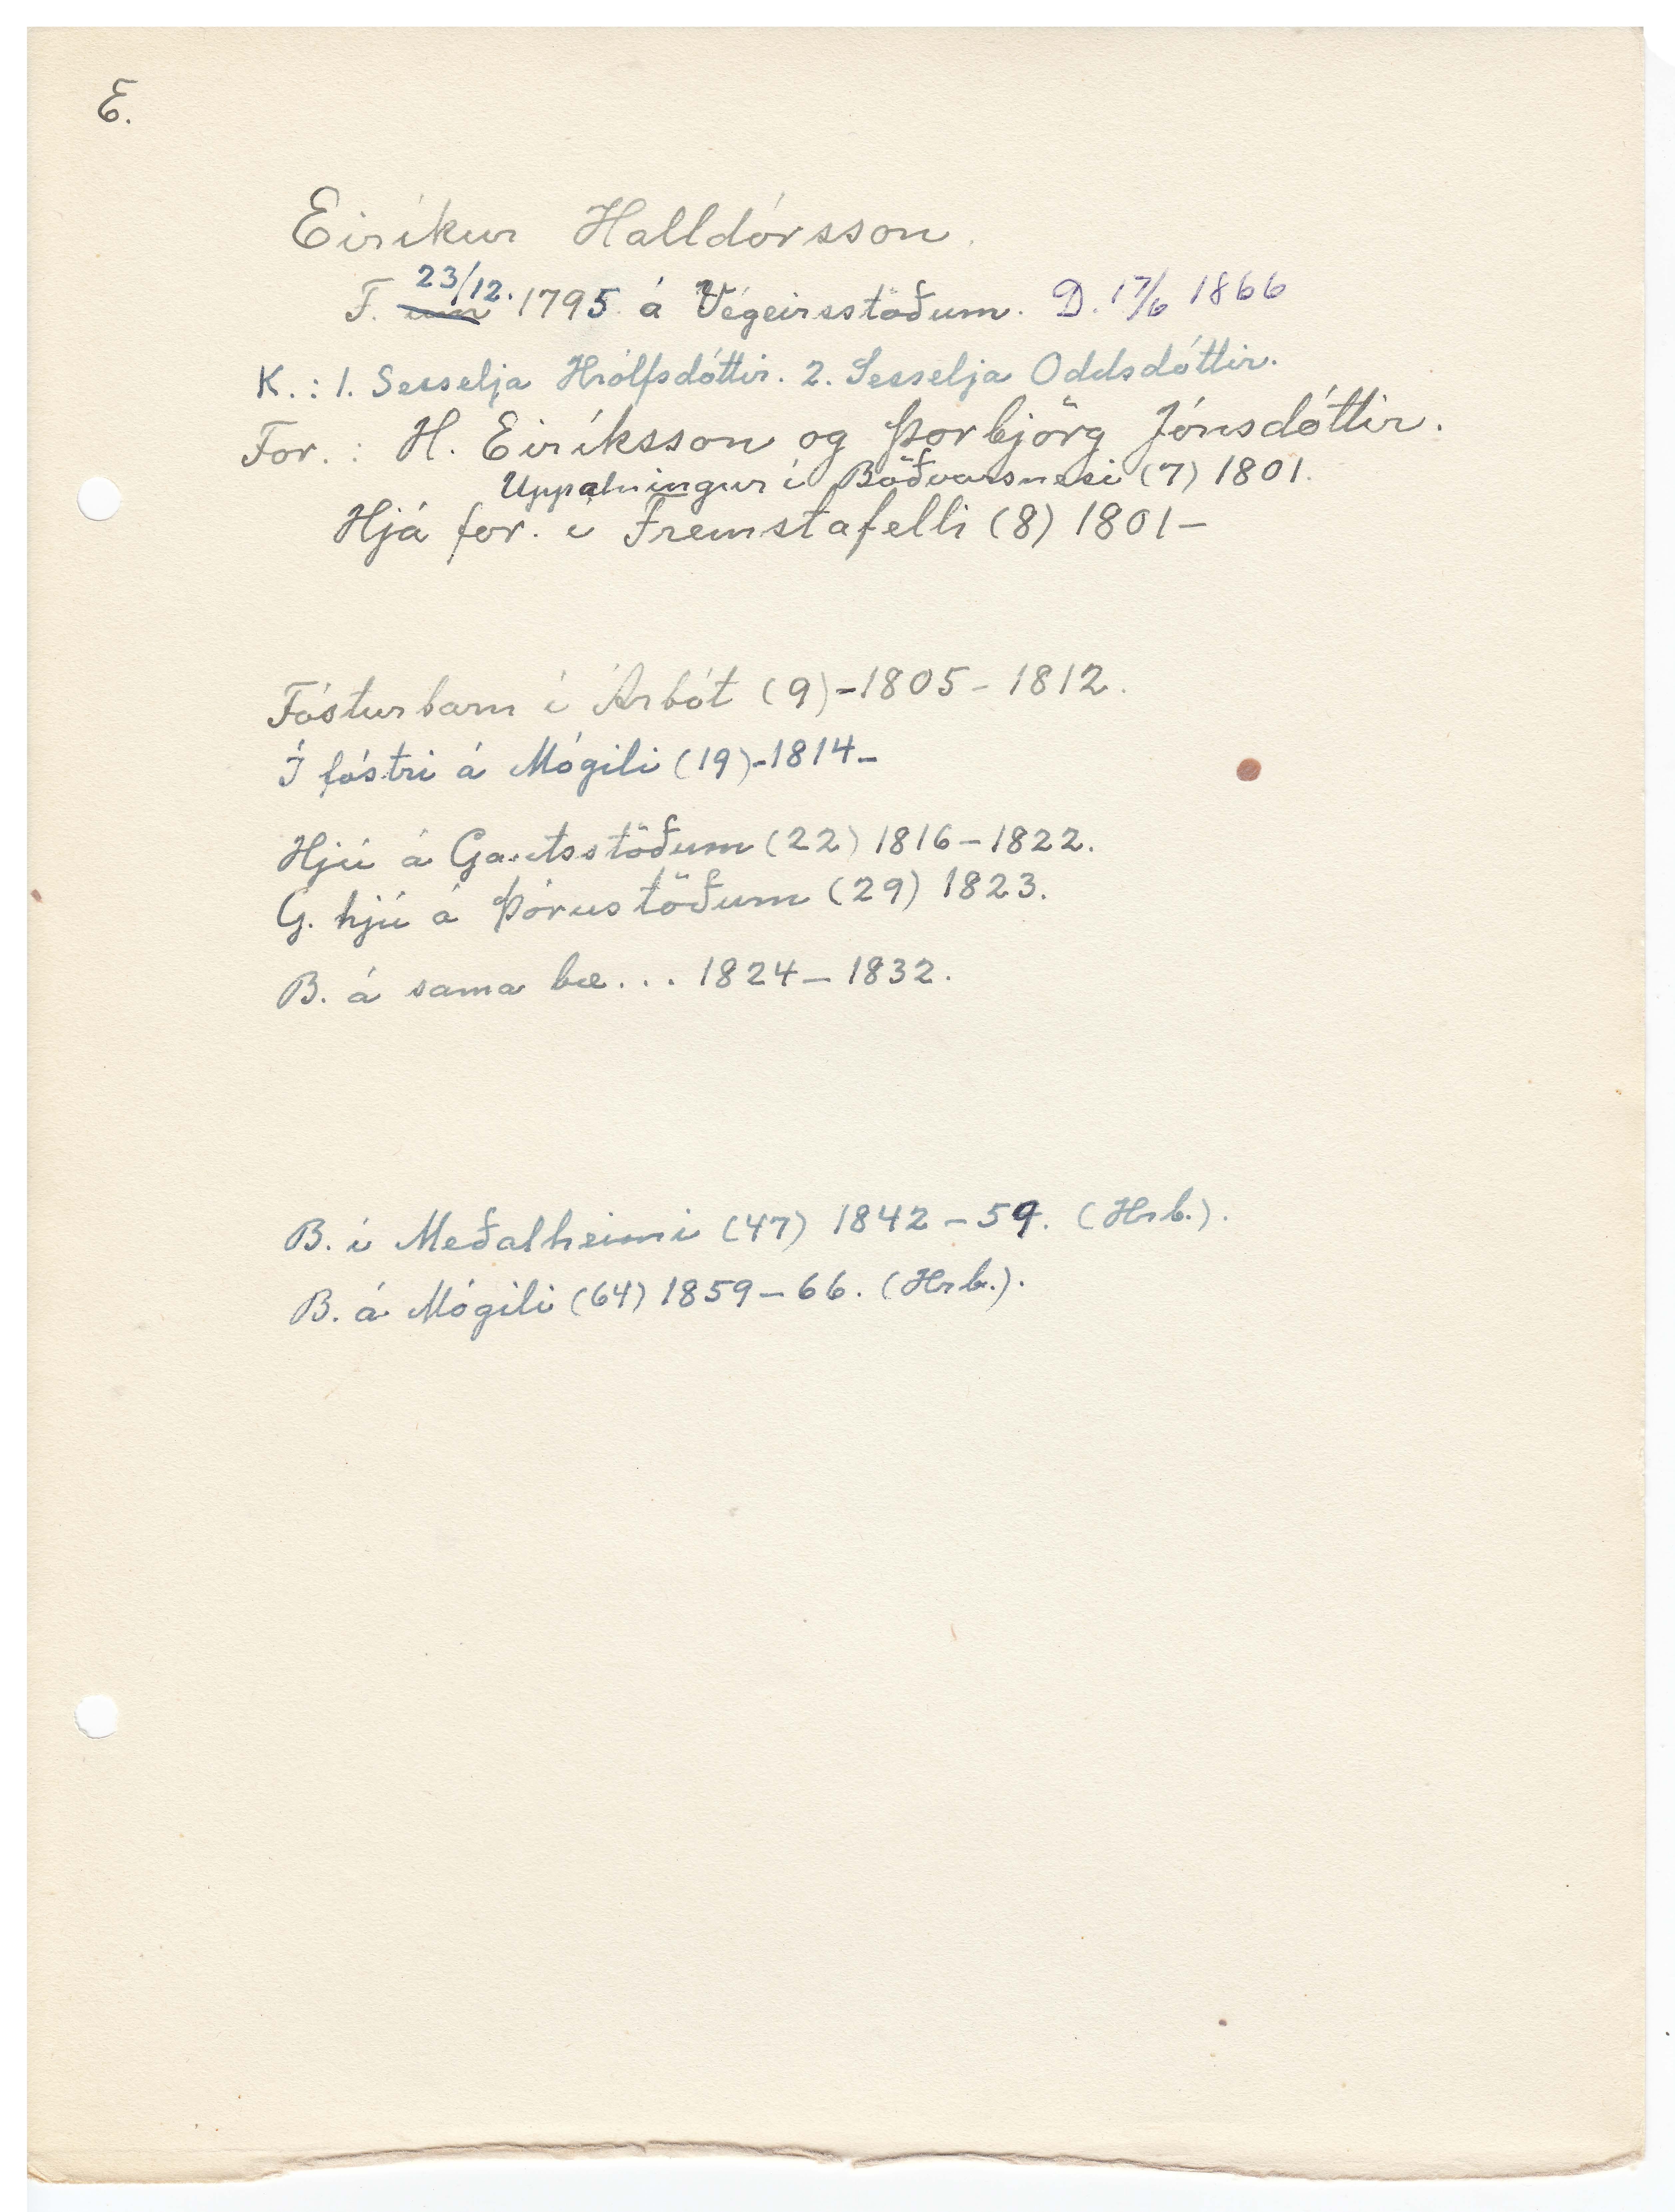 E.
Eiríkur Halldórsson.
F. um 23/12. 1795 á Végeirsstöðum. D. 17/6 1866
K.: 1. Sesselja Hrólfsdóttir. 2. Sesselja Oddsdóttir.
For.: H. Eiríksson og Þorbjörg Jónsdóttir.
Uppalningur í Böðvarsnesi (7) 1801.
Hjá for. í Fremstafelli (8) 1801-
Fósturbarn í Árbót (9)-1805-1812.
Í fóstri á Mógili (19)-1814-
Hjú á Gautsstöðum (22) 1816-1822.
G. hjú á Þórustöðum (29) 1823.
B. á sama bæ... 1824-1832.
B. í Meðalheimi (47) 1842-59. (Hrb.).
B. á Mógili (64) 1859-66. (Hrb.).